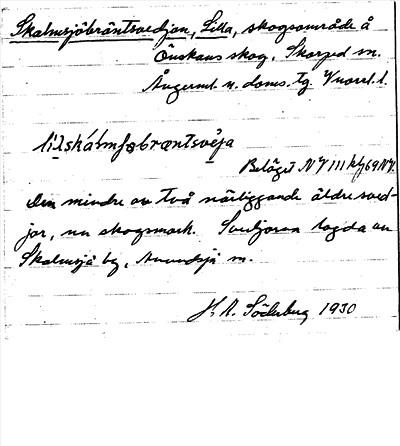 Skalmsjöbräntsvedjan, Lilla, skogsområde å
Önskans skog, Skorped sn.
Ångerml. n. doms. tg. V norrl. l.
Beläget NV III kf 69 NV.
Den mindre av två närliggande äldre sved-
jor, nu skogsmark. Svedjorna tagda av
Skalmsjö by, Anundsjö sn.
H. A. Söderberg 1930